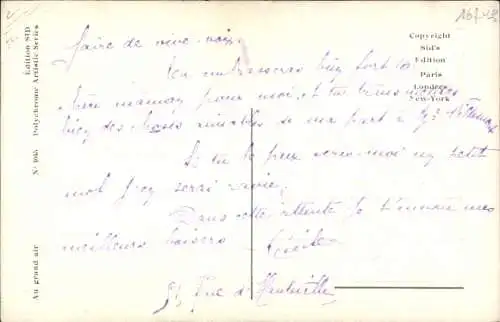 167-13
Edition SID
Polychrome Artistic Series
N° 9165
Au grand air
Copyright
Sid's
Edition
Paris
Londers
New-York
faire de vive voix.
Tu embrasseras bien fort ta
chère maman pour moi et tu
bien des choses aimables de ma part à
Si tu le peux écris-moi un petit
mot j'en serai ravie.
Dans cette attente je t'envoie mes
meilleurs baisers
51, Rue d'Hauteville